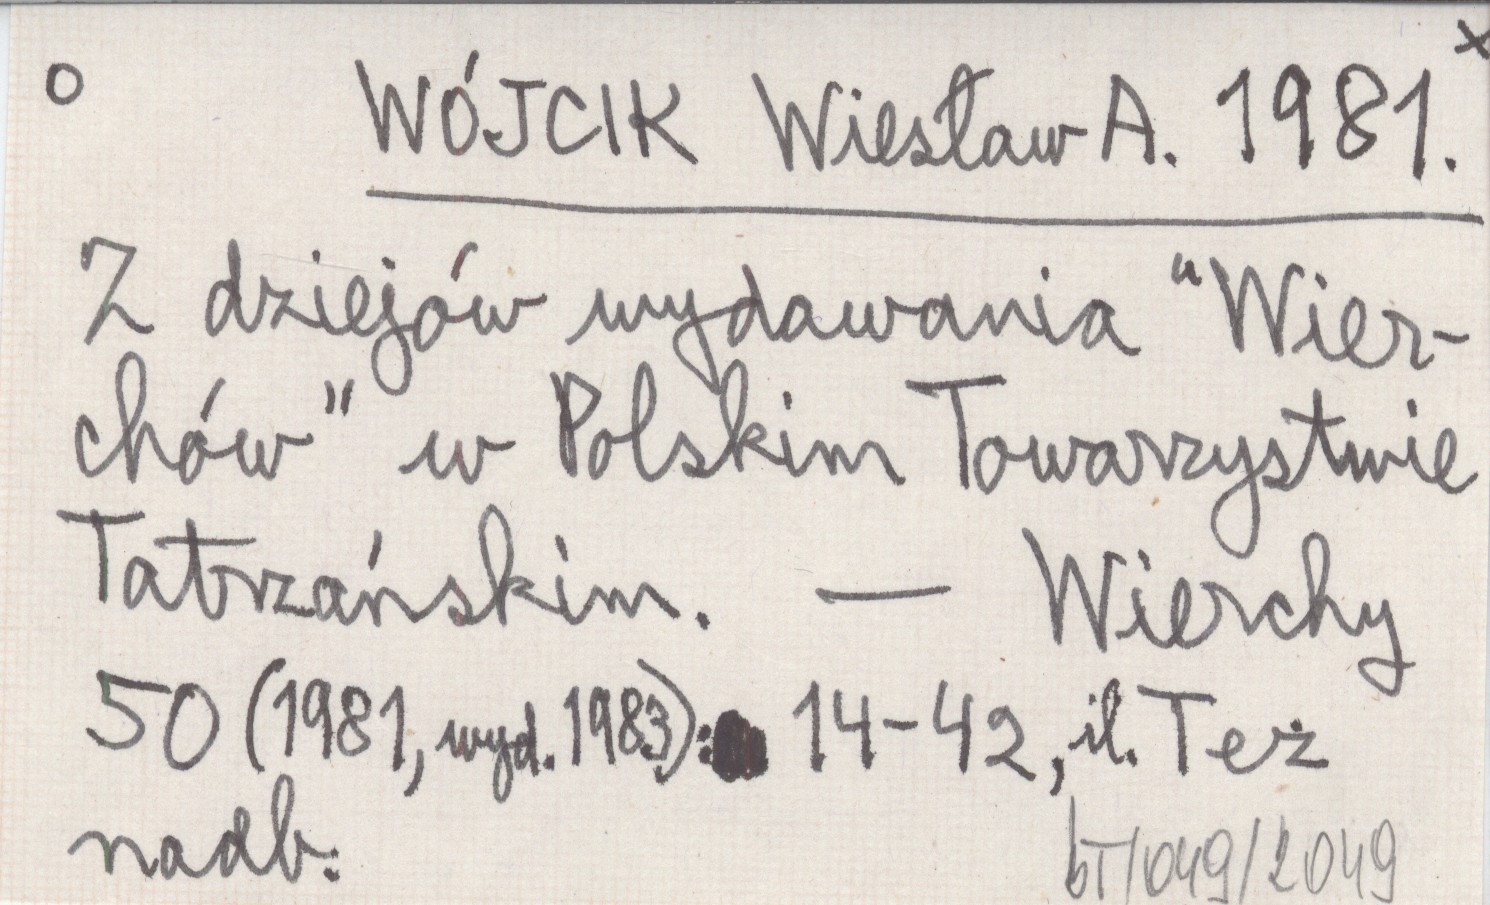 o WÓJCIK Wiesław A. 1981. x
Z dziejów wydawania "Wier-
chów" w Polskim Towarzystwie
Tatrzańskim. — Wierchy
50 (1981, wyd. 1983): 14-42, il. Też
nadb.
bT/049/2049